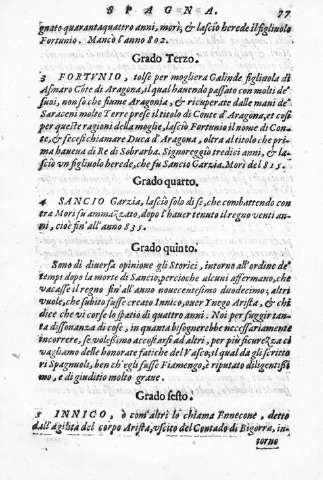 SPAGNA. 77
gnato quaranta quattro anni, morì, & lasciò herede il figliuolo
Fortunio. Mancò l'anno 802.
Grado Terzo.
3 FORTVNIO, tolse per mogliera Galinde figliuola di
Asmaro Cōte di Aragona, il qual hauendo passato con molti de'
suoi, non sò che fiume Aragonia, & ricuperate dalle mani de'
Saraceni molte Terre prese il titolo di Conte d'Aragona, et così
per queste ragioni della moglie, lasciò Fortunio il nome di Con-
te, & fecesi chiamare Duca d'Aragona, oltra al titolo che pri-
ma haueua di Re di Sobrarba. Signoreggiò tredici anni, & la-
sciò vn figliuolo herede, che fu Sancio Garzia. Morì del 815.
Grado quarto.
4 SANCIO Garzia, lasciò solo di se, che combattendo con
tra Mori fu ammazzato, dopo l'hauer tenuto il regno venti an-
ni, cioè fin'all'anno 835.
Grado quinto.
Sono di diuersa opinione gli Storici, intorno all'ordine de'
tempi dopo la morte di Sancio, percioche alcuni affermano, che
vacasse il regno fin'all'anno nouecentesimo duodecimo; altri
vuole, che subito fusse creato Innico, ouer Ynego Arista, & chi
dice che vi corse lo spatio di quattro anni. Noi per fuggir tan-
ta dissonanza di cose, in quanta bisognerebbe necessariamente
incorrere, se volessimo accostarsi ad altri, per più sicurezza ci
vagliamo delle honorate fatiche del Vasco, il qual da gli scritto
ri Spagnuoli, ben ch'egli fusse Fiamengo, è riputato diligentissi
mo, e di giuditio molto graue.
Grado sesto.
5 INNICO, ò com'altri lo chiama Ennecone, detto
dall'agilità del corpo Arista, vscito del Contado di Bigorra, in-
torno